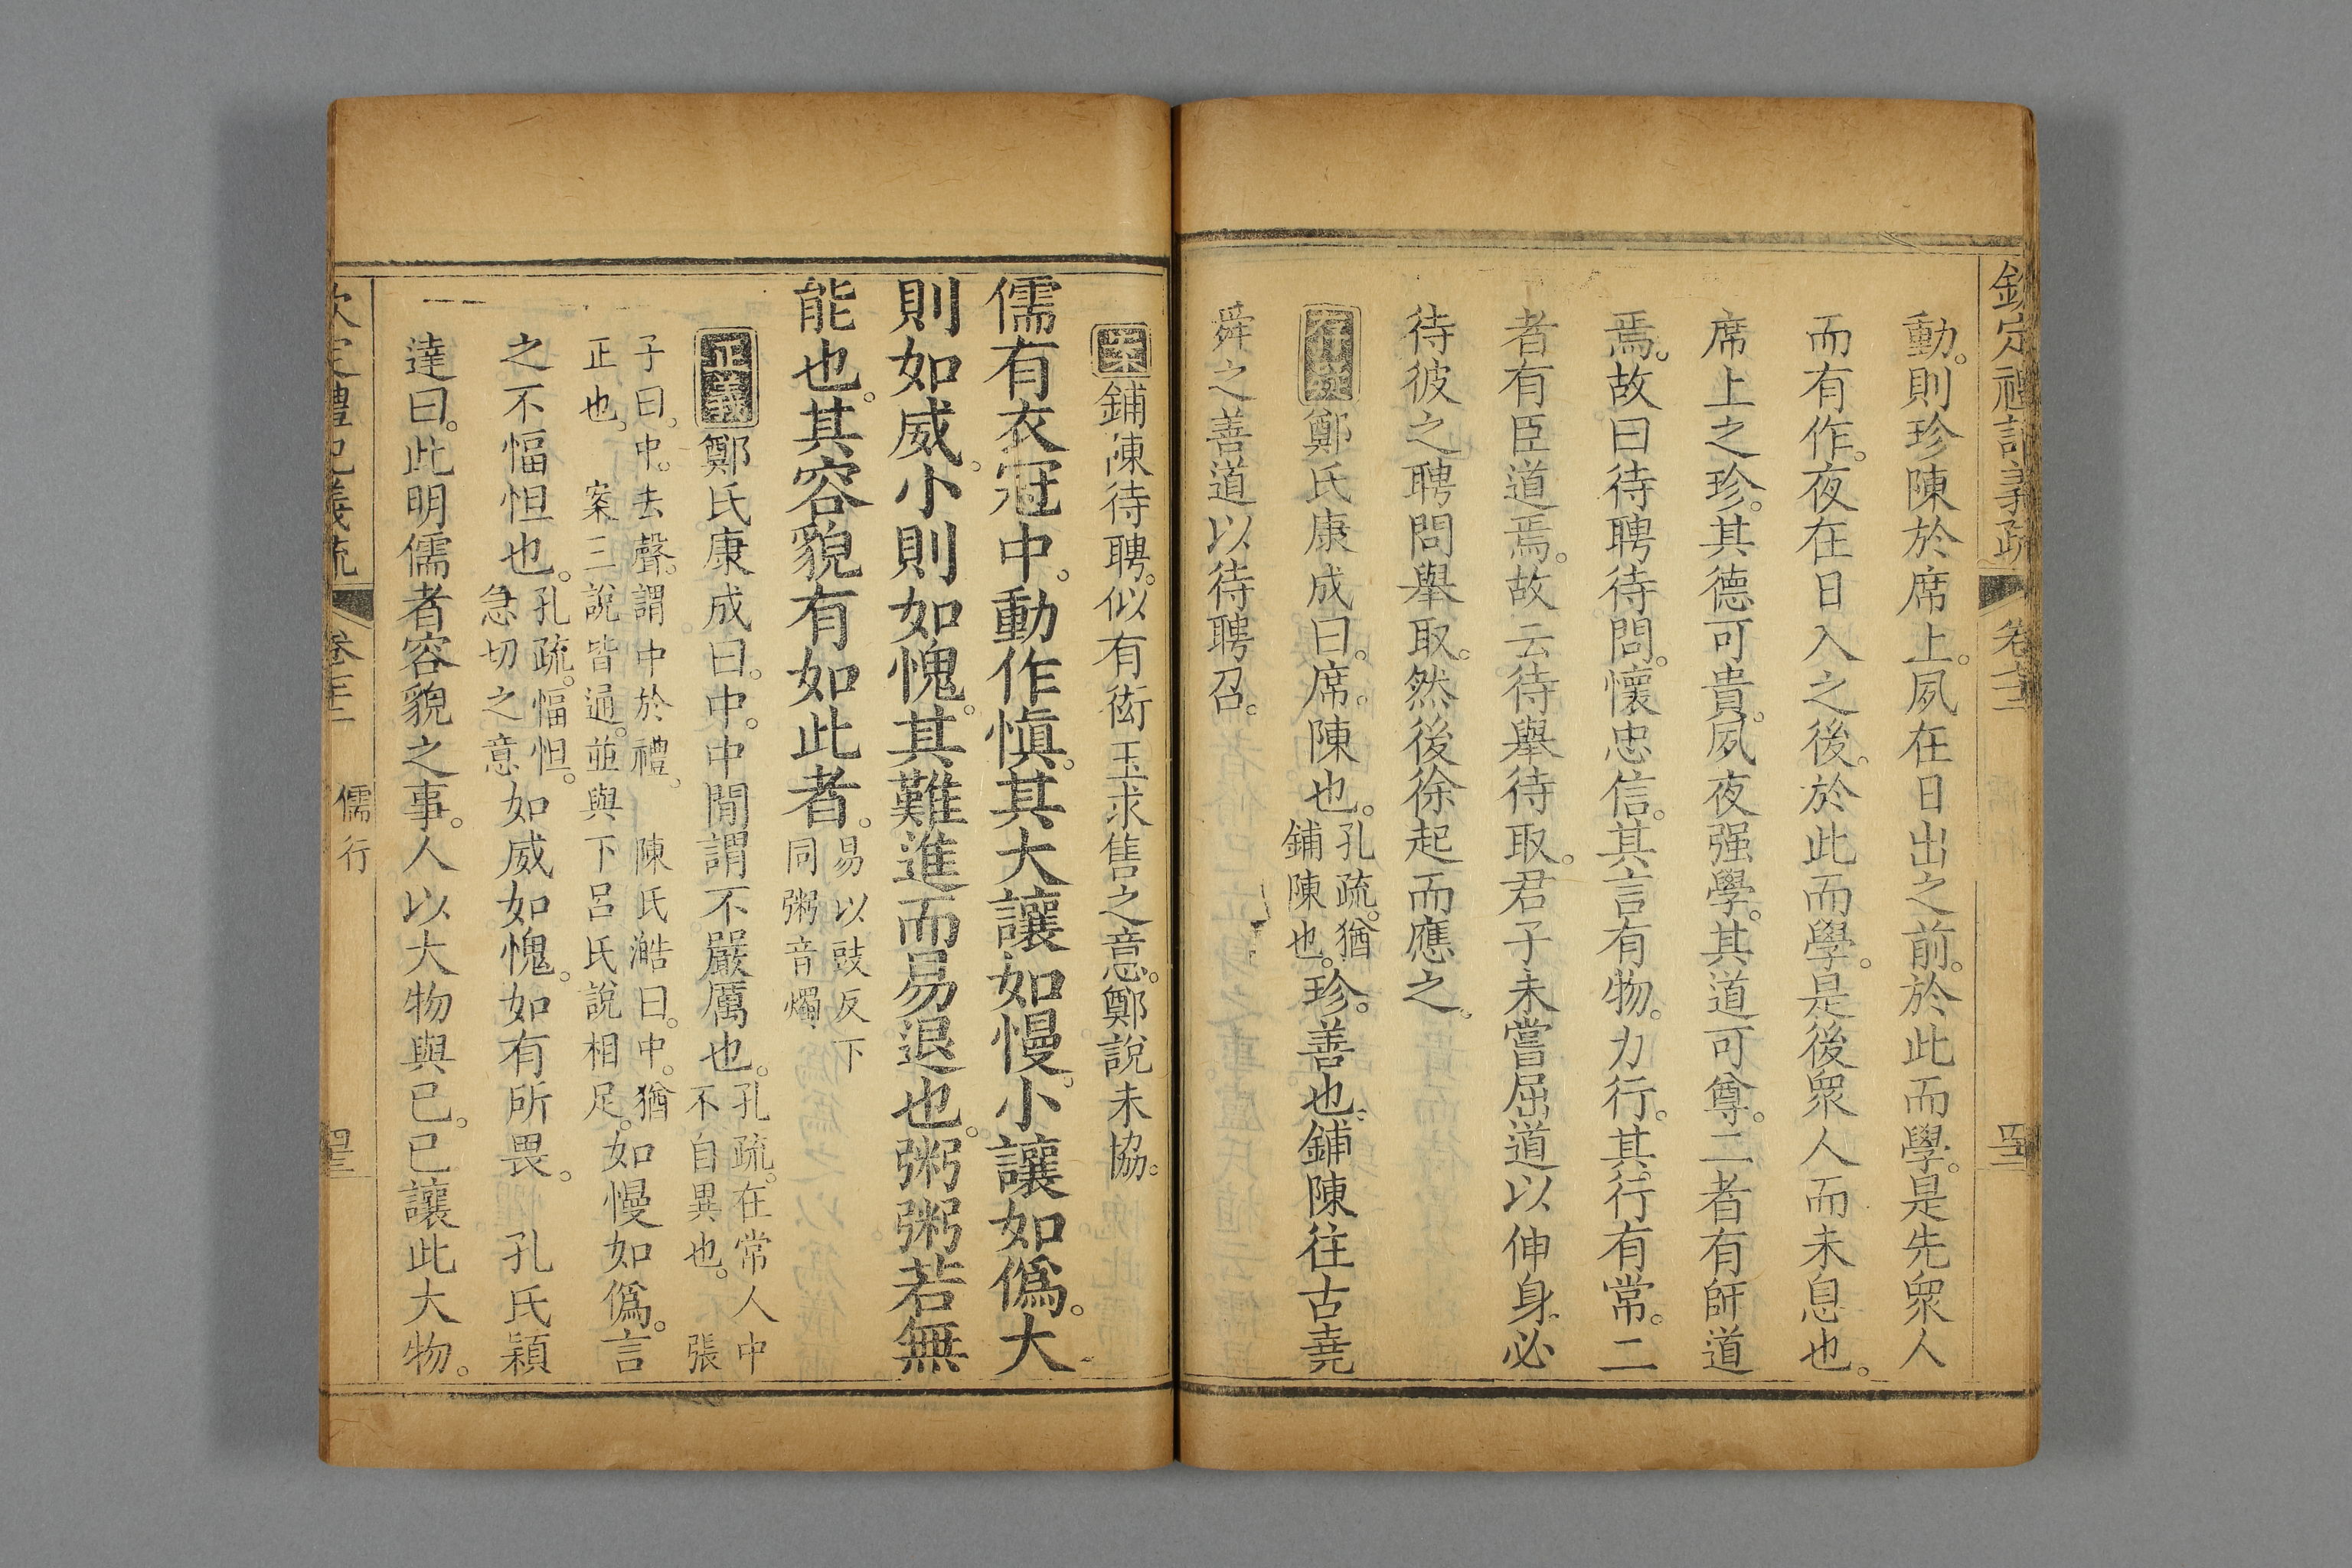 欽定禮記義疏
動。則珍陳於席上。夙在日出之前。於此而學。是先衆人
而有作。夜在日入之後。於此而學。是後衆人而未息也。
席上之珍。其德可貴。夙夜强學。其道可尊。二者有師道
焉。故曰待聘待問。懷忠信。其言有物。力行。其行有常。二
者有臣道焉。故云待舉待取。君子未嘗屈道以伸身。必
待彼之聘問舉取。然後徐起而應之。
存疑鄭氏康成曰。席。陳也。孔疏。猶鋪陳也。珍。善也。鋪陳往古堯
舜之善道以待聘召。
案鋪陳待聘。似有衒玉求售之意。鄭說未協。
儒有衣冠中。動作愼。其大讓如慢。小讓如僞。大
則如威。小則如愧。其難進而易退也。粥粥若無
能也。其容貌有如此者。易以豉反下同粥音燭
正義鄭氏康成曰。中。中間謂不嚴厲也。孔疏。在常人中不自異也。張
子曰。中。去聲。謂中於禮。陳氏澔曰。中。猶正也。案三說皆通。並與下呂氏說相足。如慢如僞。言
之不愊怛也。孔疏。愊怛。急切之意如威如愧。如有所畏。孔氏穎
達曰。此明儒者容貌之事。人以大物與已。已讓此大物。
欽定禮記義疏
儒行